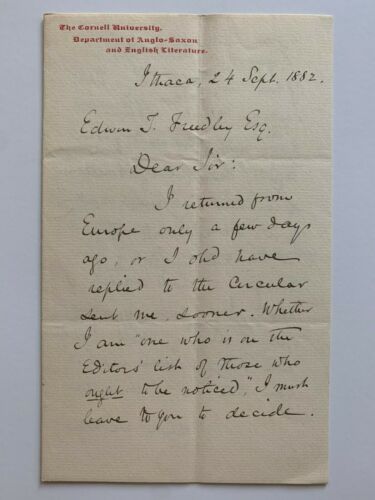 The Cornell University.
Department of Anglo-Saxon
and English Literature.
Ithaca, 24 Sept. 1882.
Edwin T. Freedley Esq.
Dear Sir:
I returned from
Europe only a few days
ago, or I shd have
replied to the Circular
sent me, sooner. Whether
I am "one who is on the
Editors' list of those who
ought to be noticed", I must
leave to you to decide.